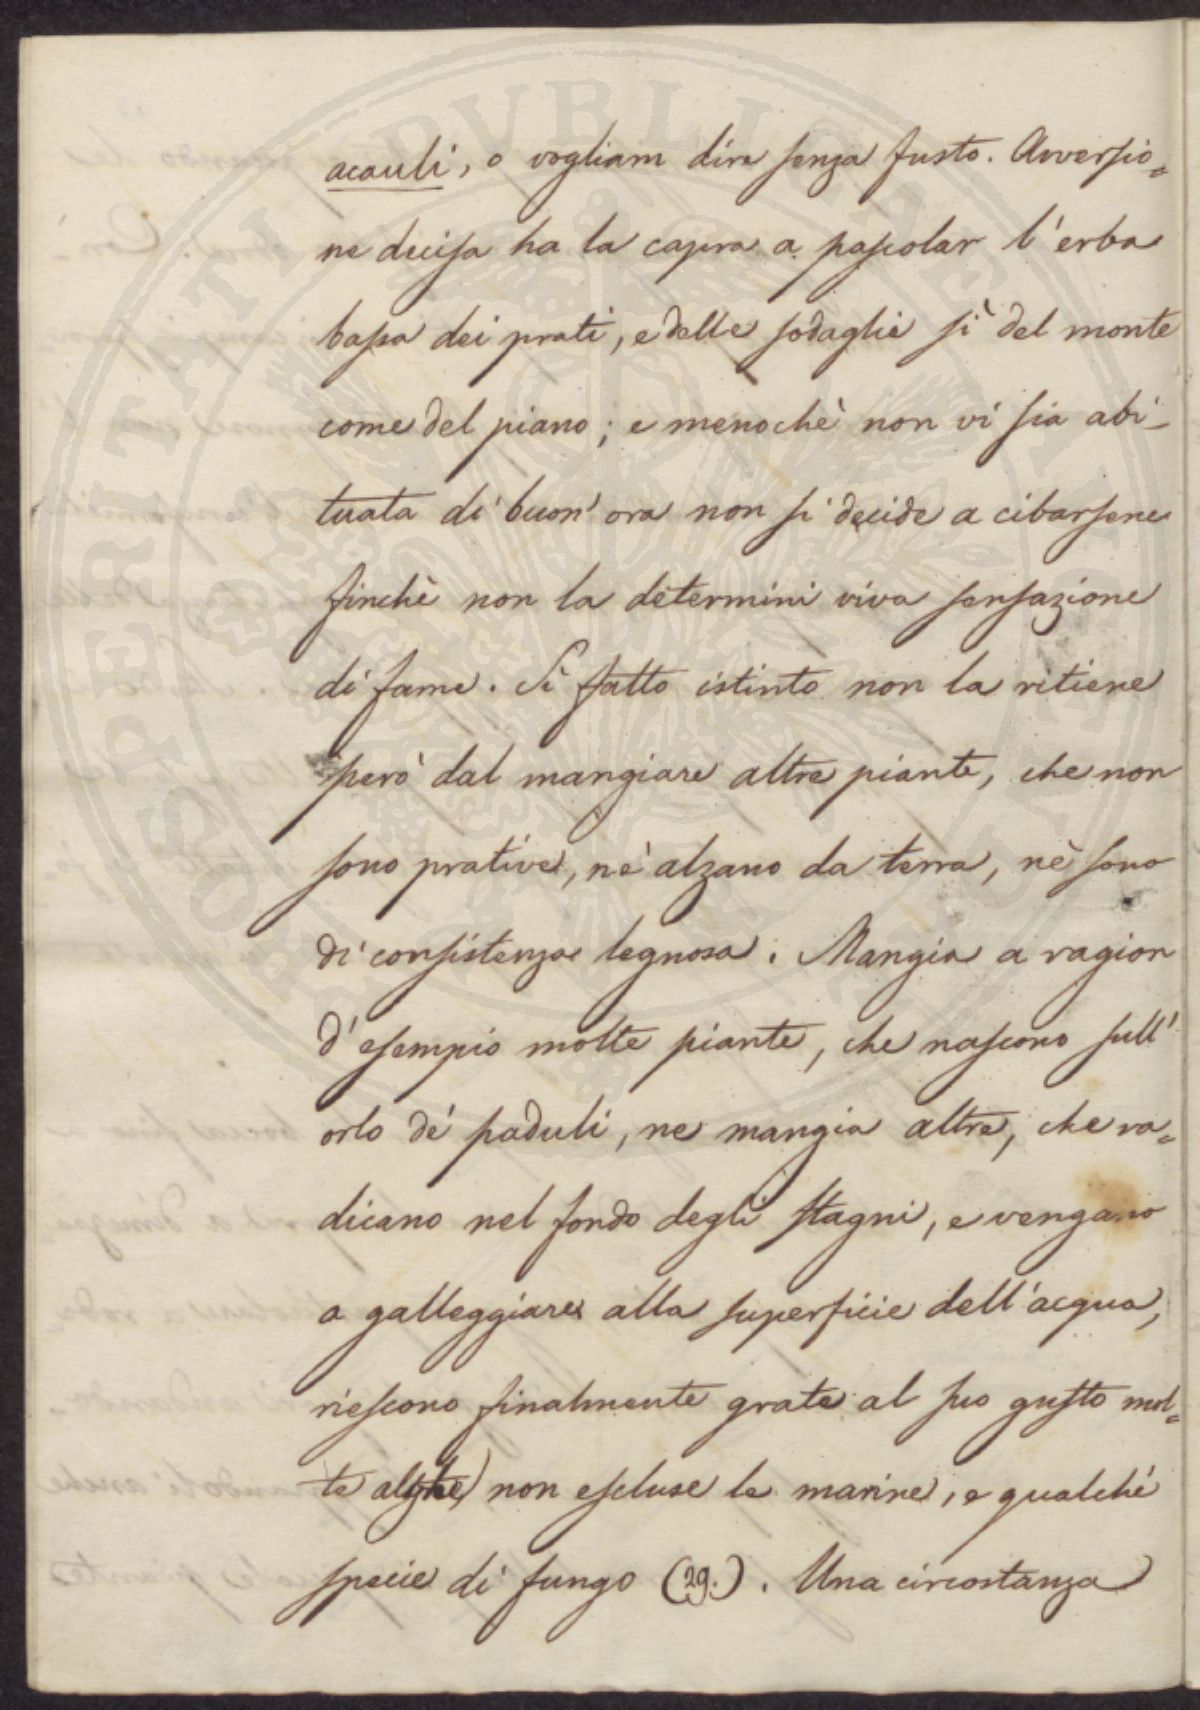 acauli, o vogliam dire senza fusto. Avversio=
ne decisa ha la capra a pascolar l'erba
bassa dei prati, e delle sodaglie sì del monte
come del piano; e menochè non vi sia abi-
tuata di buon' ora non si decide a cibarsene
finchè non la determini viva sensazione
di fame. Sì fatto istinto non la ritiene
però dal mangiare altre piante, che non
sono prative, nè alzano da terra, nè sono
di consistenza legnosa. Mangia a ragion
d'esempio molte piante, che nascono sull'
orlo de' paduli, ne mangia altre, che ra=
dicano nel fondo degli stagni, e vengano
a galleggiare alla superficie dell'acqua,
riescono finalmente grate al suo gusto mol=
te alghe, non escluse le marine, e qualché
specie di fungo (29.). Una circostanza
PROSPERITATI PUBLICAE AUGENDAE